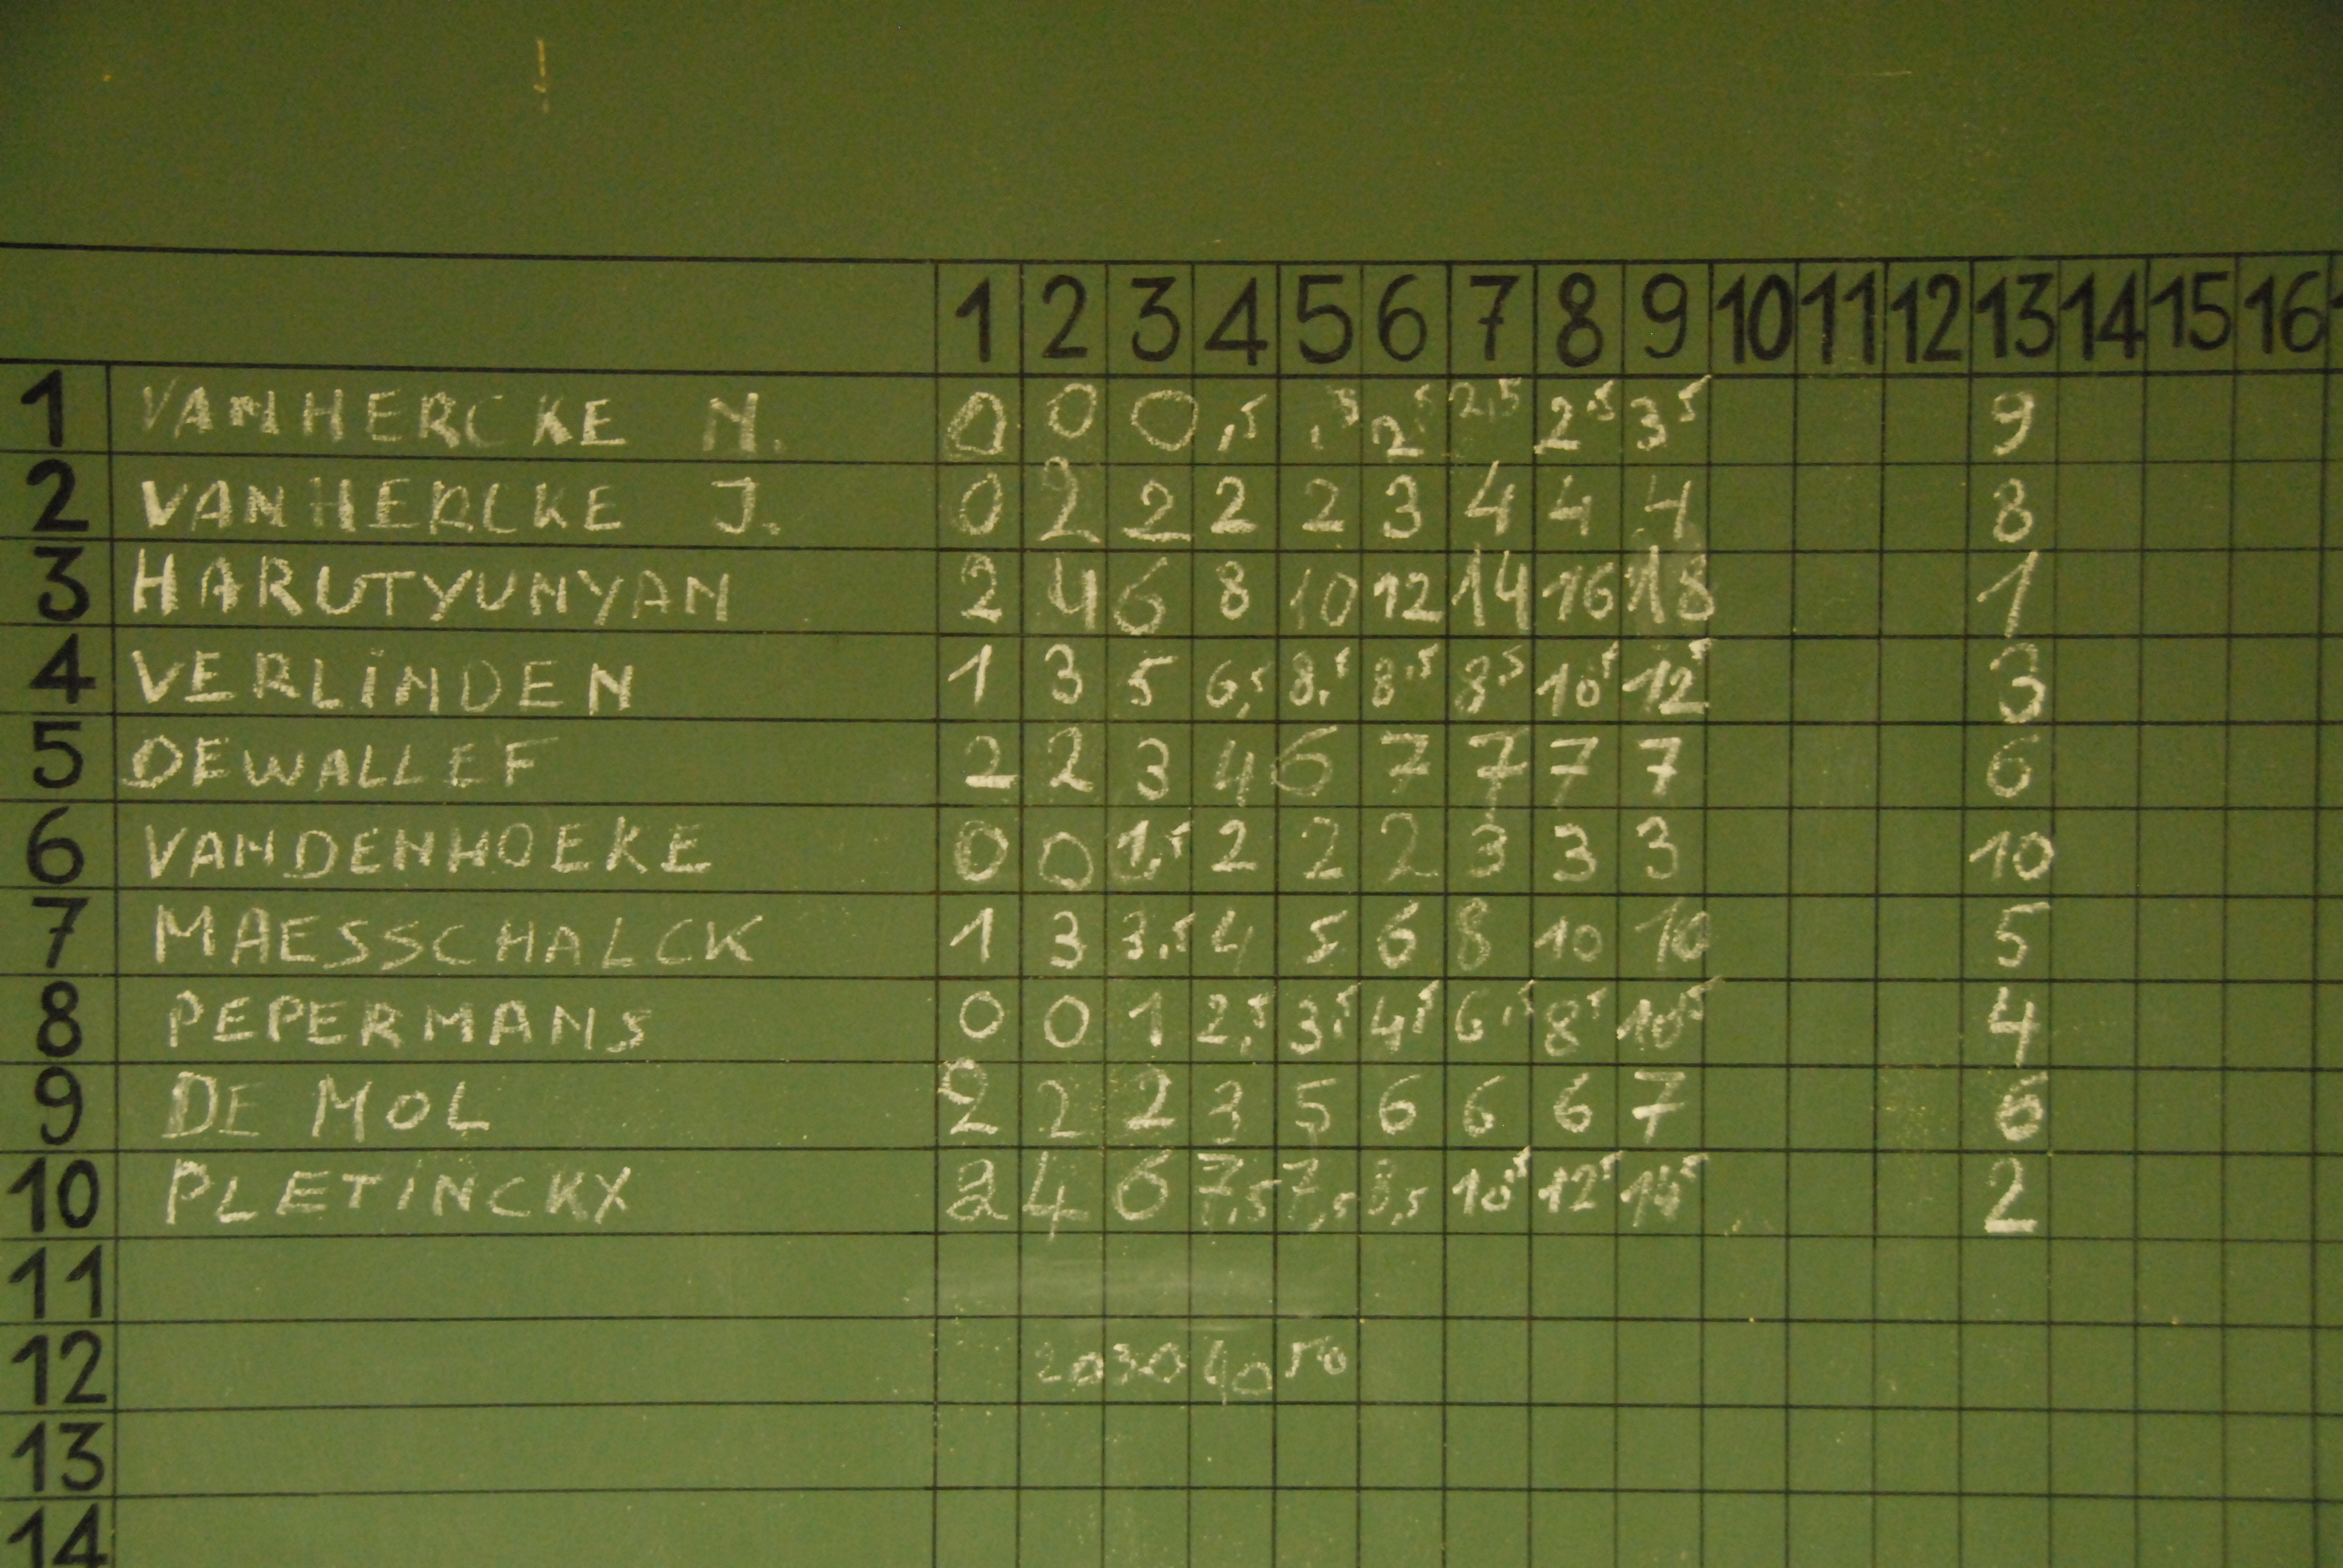 1 2 3 4 5 6 7 8 9 10 11 12 13 14 15 16
1 VANHERCKE N. 0 0 0 ,5 ,5 2,5 2,5 2,5 3 5 9
2 VANHERCKE J. 0 2 2 2 2 3 4 4 4 8
3 HARUTYUNYAN 2 4 6 8 10 12 14 16 18 1
4 VERLINDEN 1 3 5 6,5 8,5 8,5 8,5 10,5 12,5 3
5 DEWALLEF 2 2 3 4 6 7 7 7 7 6
6 VANDENHOEKE 0 0 1,5 2 2 2 3 3 3 10
7 MAESSCHALCK 1 3 3,5 4 5 6 8 10 10 5
8 PEPERMANS 0 0 1 2,5 3,5 4,5 6,5 8,5 10,5 4
9 DE MOL 2 2 2 3 5 6 6 6 7 6
10 PLETINCKX 2 4 6 7,5 7,5 8,5 10,5 12,5 14,5 2
11
12 20 30 40 50
13
14